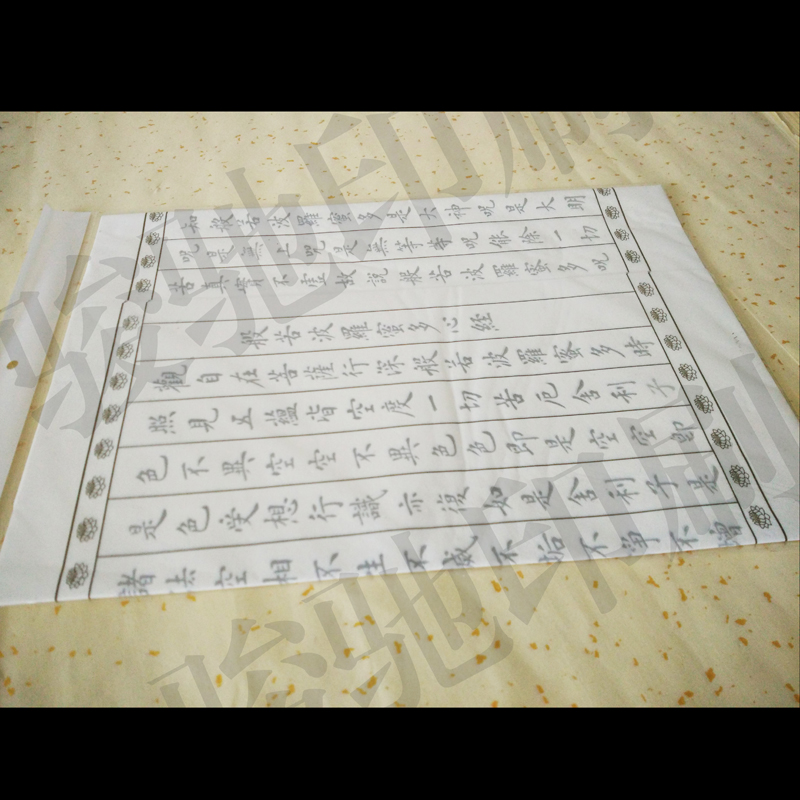 知般若波羅蜜多是大神呪是大明
呪是無上呪是無等等呪能除一切
苦真實不虛故說般若波羅蜜多呪
般若波羅蜜多心経
觀自在菩薩行深般若波羅蜜多時
照見五蘊皆空度一切苦厄舍利子
色不異空空不異色色即是空空即
是色受想行識亦復如是舍利子是
諸法空相不生不滅不垢不淨不增
骏驰印刷
骏驰印刷